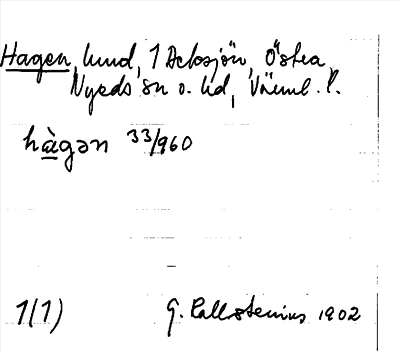 Hagen, lund, 1 Acksjön, Östra
Nyeds sn o. hd, Värml. l.
hàgən 33/960
1(1) G. Kallstenius 1902